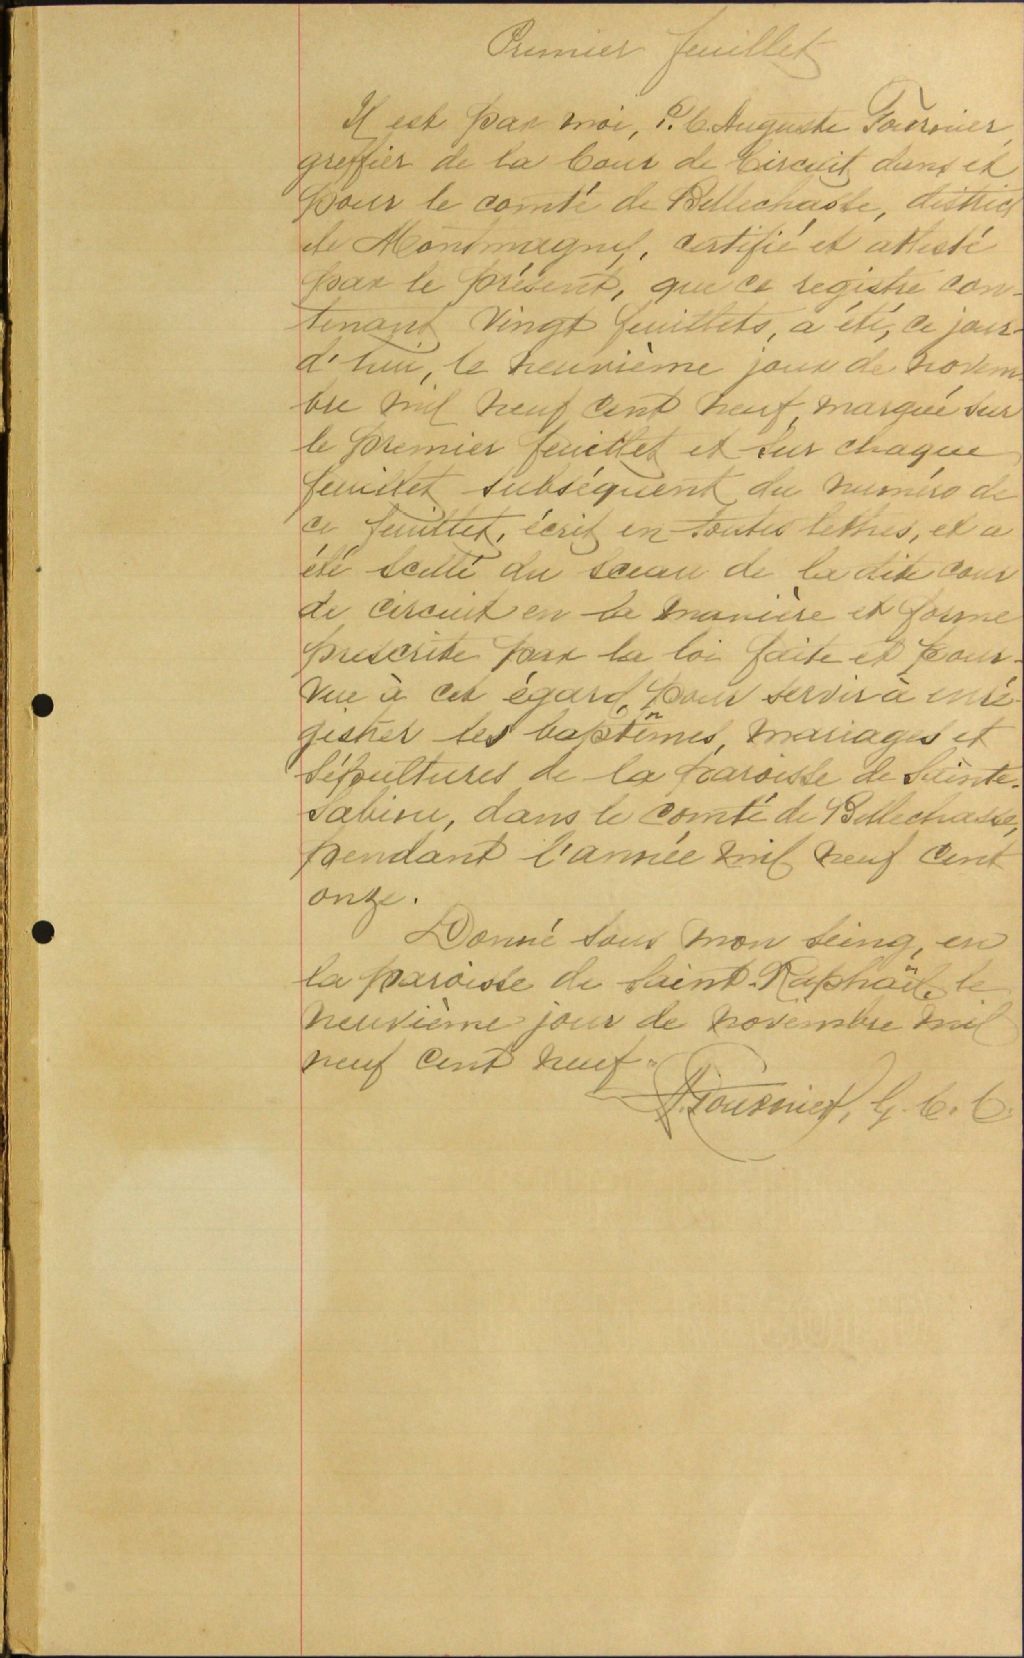 Premier feuillet
Il est par moi, P. C. Auguste Fournier,
greffier de la Cour de Circuit dans et
pour le comté de Bellechasse, district
de Montmagny, certifié et attesté
par le présent, que ce registre con-
tenant vingt feuillets, a été, ce jour-
d'hui, le neuvième jour de novem-
bre mil neuf cent neuf, marqué sur
le premier feuillet et sur chaque
feuillet subséquent du numéro de
ce feuillet, écrit en toutes lettres, et a
été scellé du sceau de la dite cour
de circuit en la manière et forme
prescrite par la loi faite et pour-
vue à cet égard, pour servir à enré-
gistrer les baptêmes, mariages et
sépultures de la paroisse de Sainte-
Sabine, dans le comté de Bellechasse,
pendant l'année mil neuf cent
onze.
Donné sous mon seing, en
la paroisse de Saint-Raphaël, le
neuvième jour de novembre mil
neuf cent neuf.
A. Fournier, G. C. C.